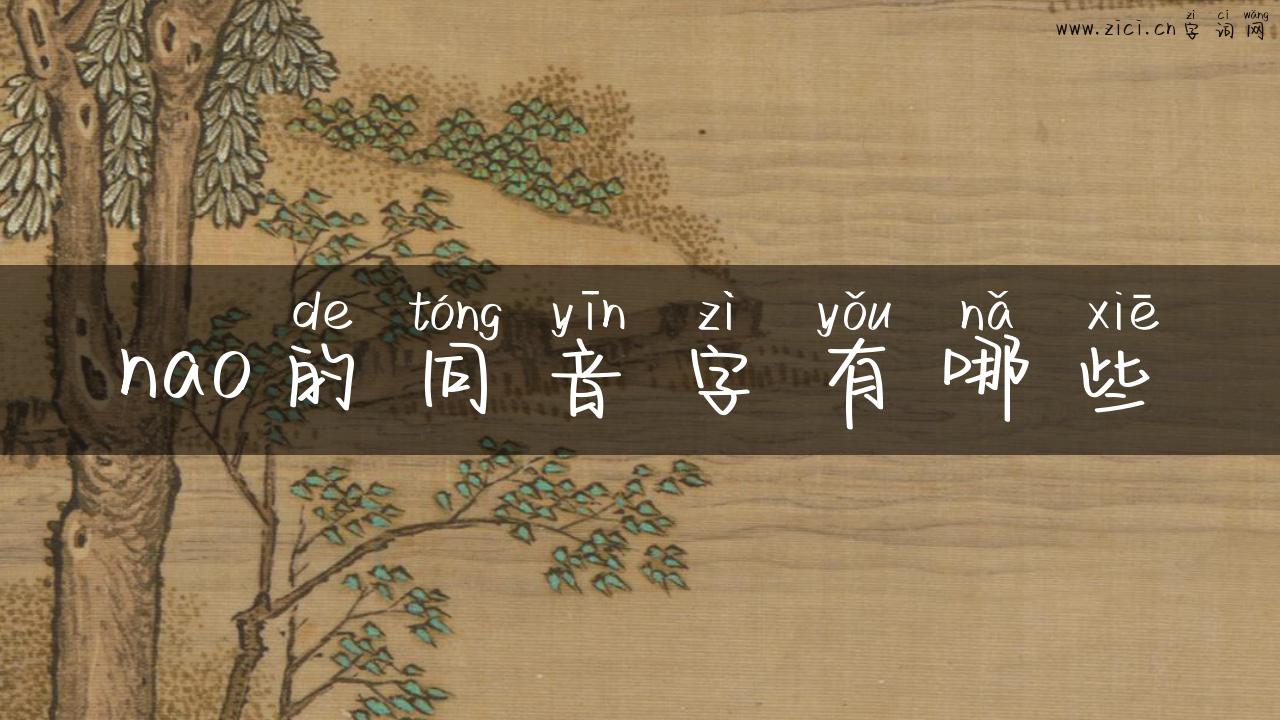 zì cí wǎng
www.zici.cn字词网
de tóng yīn zì yǒu nǎ xiē
nao的同音字有哪些